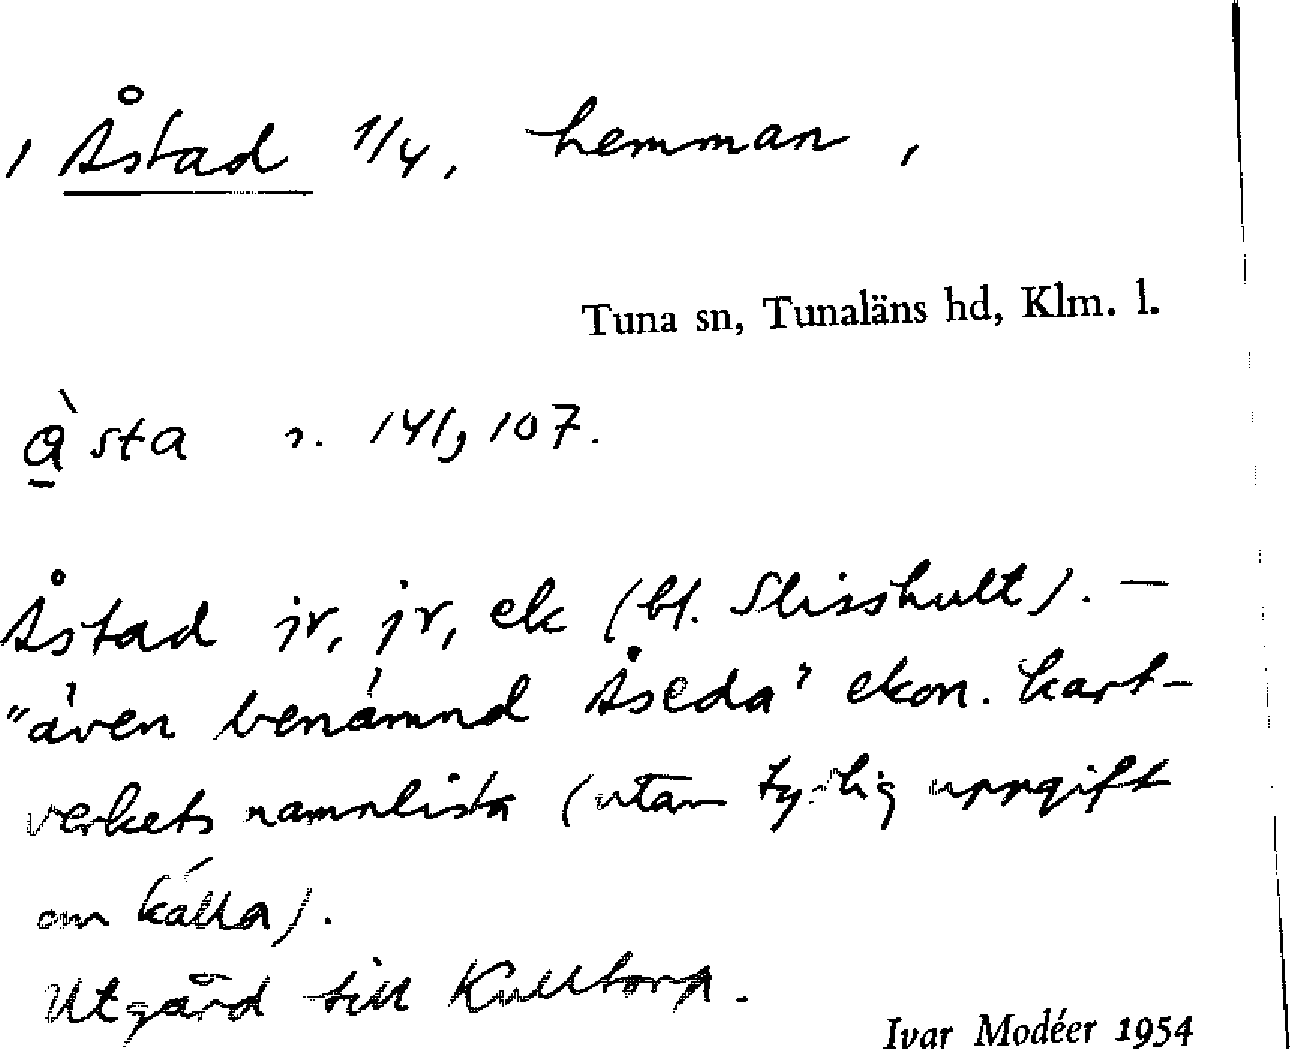 , Åstad 1/4, hemman ,
Tuna sn, Tunaläns hd, Klm. l.
à̱sta s. 141, 107.
Åstad jr, jr, ek (bf. Slisshult). —
"även benämnd Åseda" ekon. kart-
verkets namnlista (utan tydlig uppgift
om källa).
Utgård till Kulltorp.
Ivar Modéer 1954